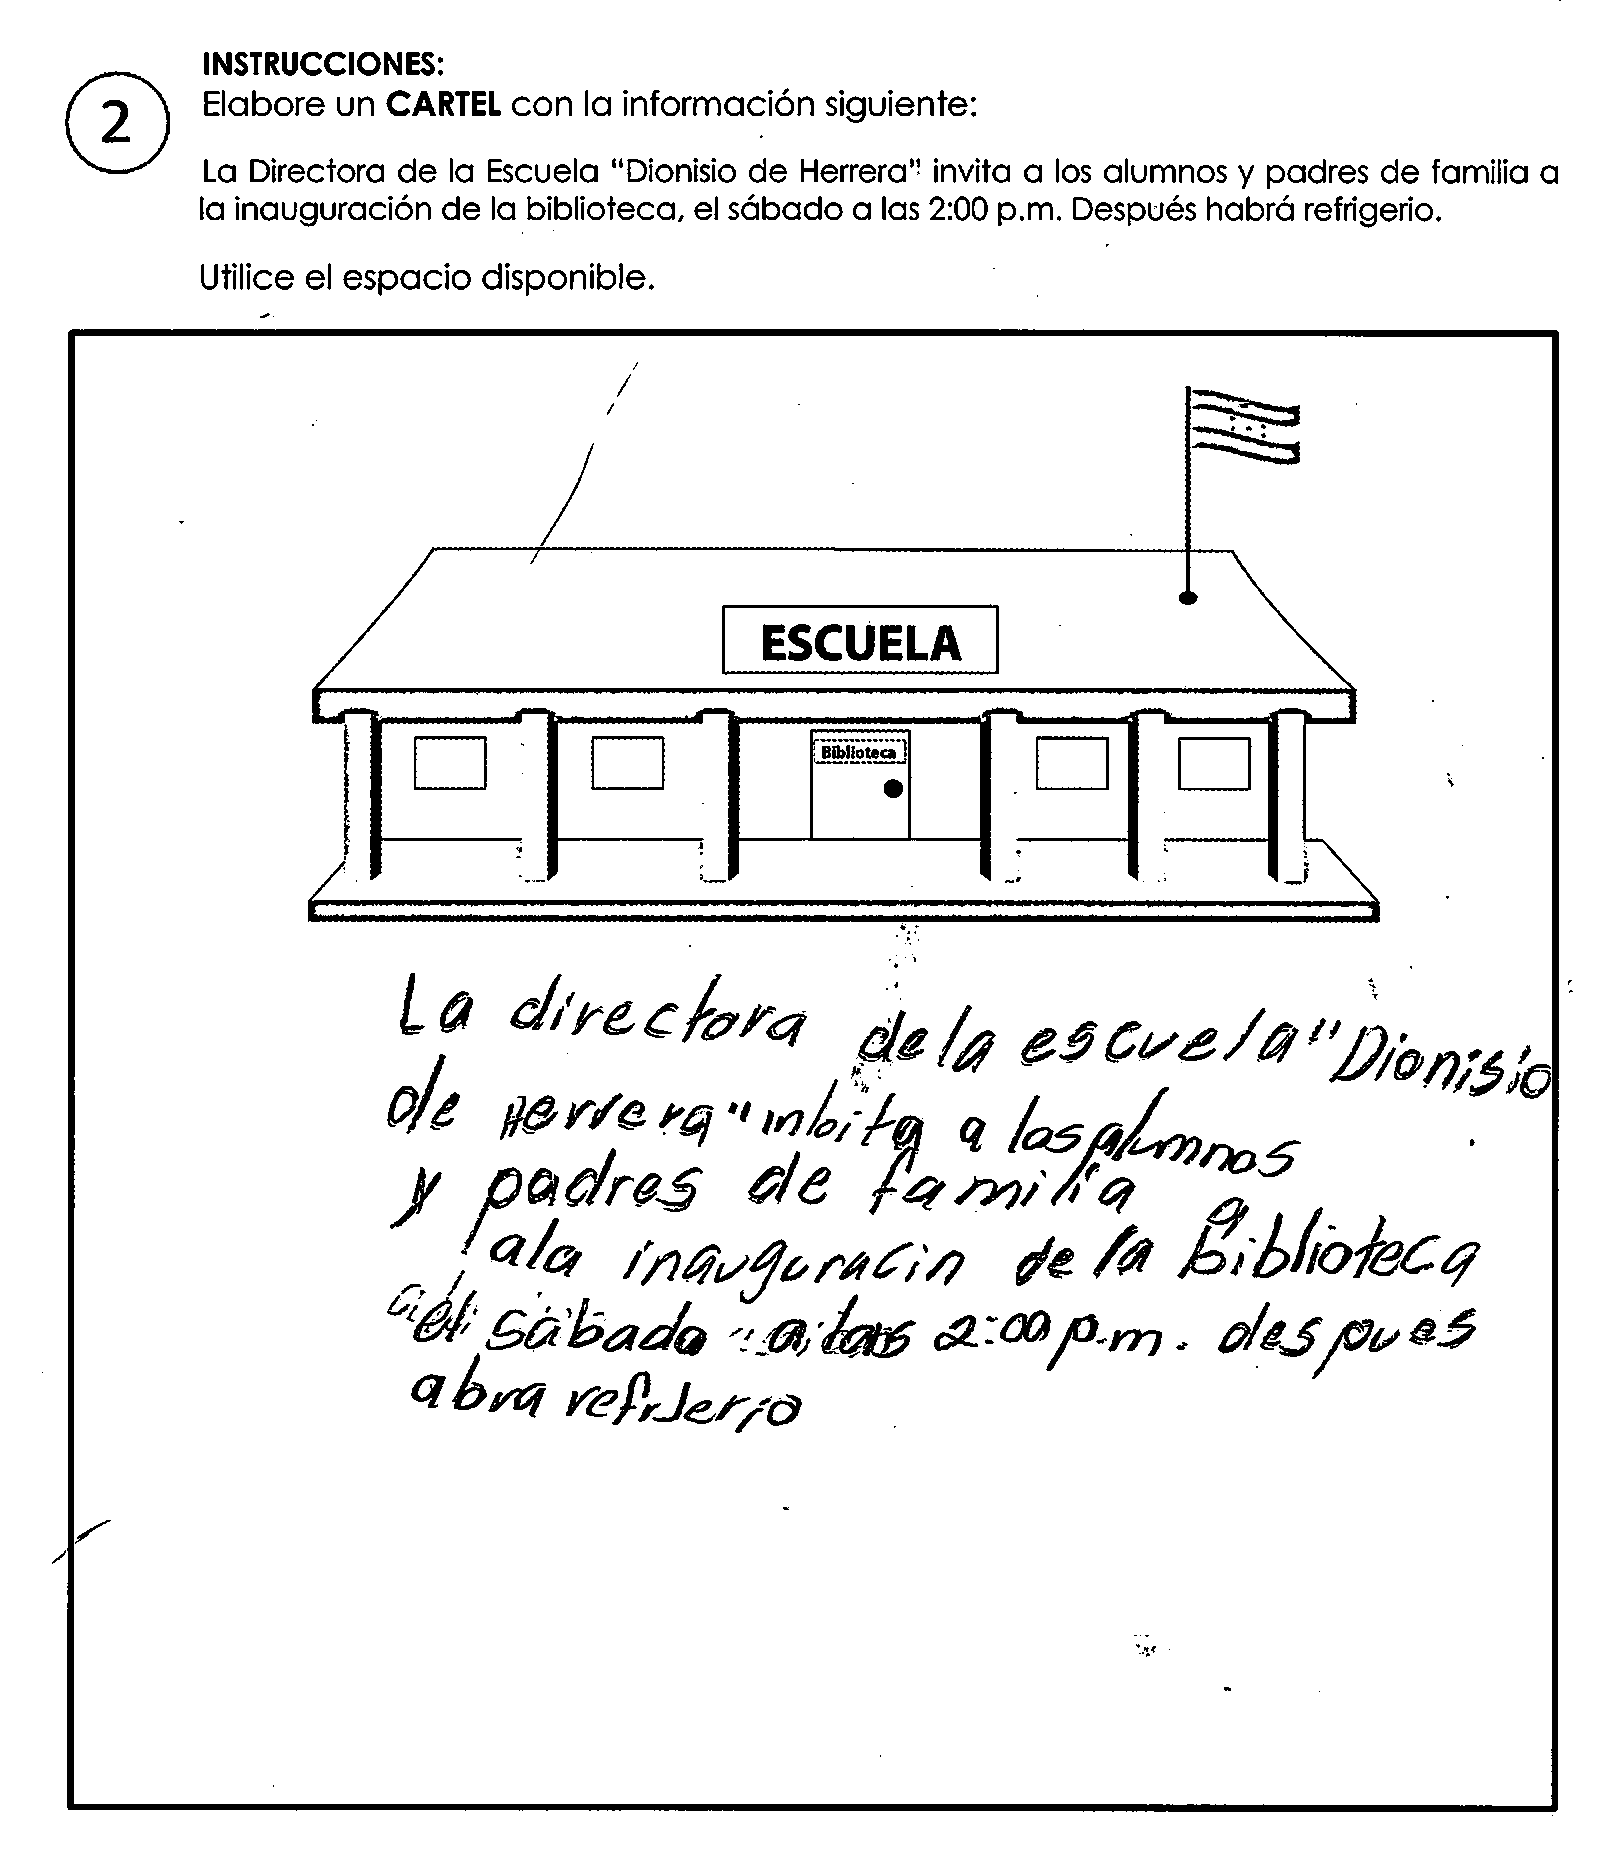 INSTRUCCIONES:
2
Elabore un CARTEL con la información siguiente:
La Directora de la Escuela "Dionisio de Herrera" invita a los alumnos y padres de familia a
la inauguración de la biblioteca, el sábado a las 2:00 p.m. Después habrá refrigerio.
Utilice el espacio disponible.
ESCUELA
Biblioteca
La directora dela escuela "Dionisio
de Herrera" inbita a los alumnos
y padres de familia a
ala inauguracin de la Biblioteca
el sábado a las 2:00 p.m. despues
abra refrJerio